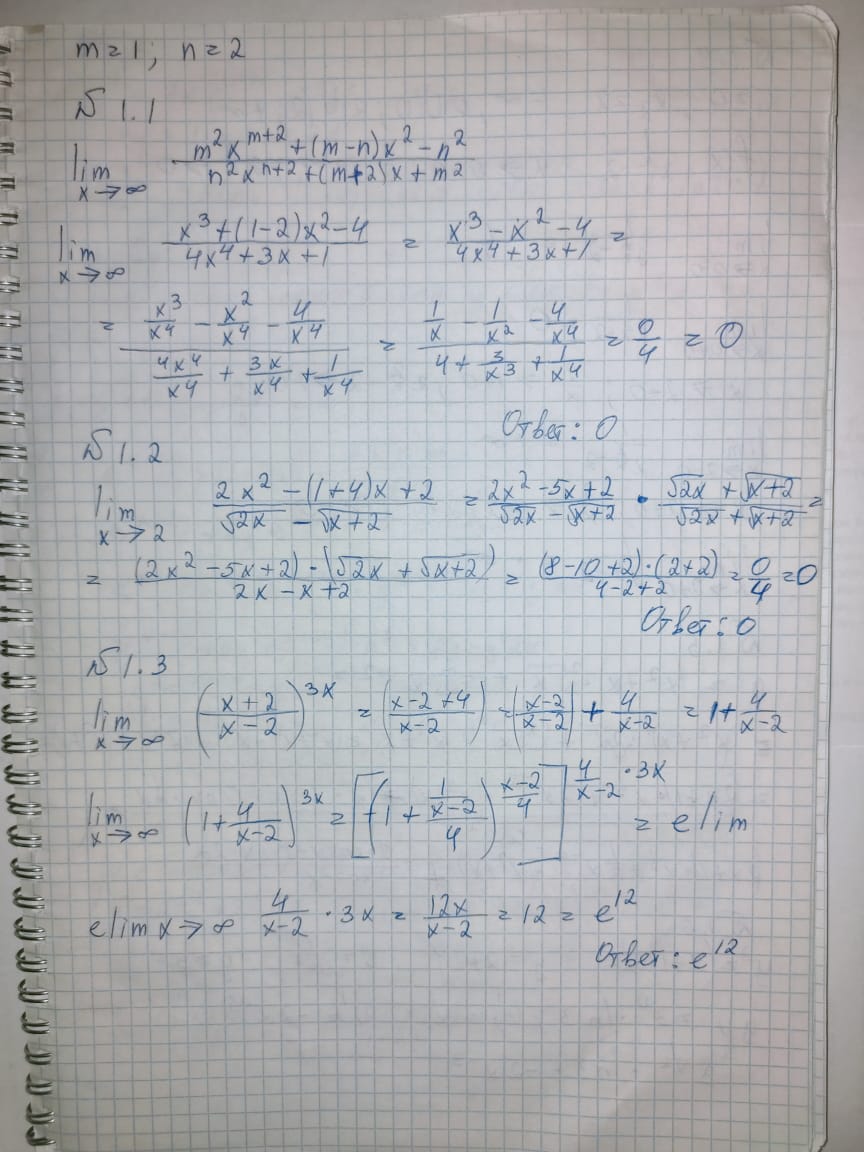 m = 1; n = 2
№ 1.1
lim x→∞ (m²x^(m+2) + (m-n)x² - n²)/(n²x^(n+2) + (m+2)x + m²)
lim x→∞ (x³ + (1-2)x² - 4)/(4x⁴ + 3x + 1) = (x³ - x² - 4)/(4x⁴ + 3x + 1) =
= (x³/x⁴ - x²/x⁴ - 4/x⁴)/(4x⁴/x⁴ + 3x/x⁴ + 1/x⁴) = (1/x - 1/x² - 4/x⁴)/(4 + 3/x³ + 1/x⁴) = 0/4 = 0
Ответ: 0
№ 1.2
lim x→2 (2x² - (1+4)x + 2)/(√2x - √x+2) = (2x² - 5x + 2)/(√2x - √x+2) • (√2x + √x+2)/(√2x + √x+2) =
= ((2x² - 5x + 2)·(√2x + √x+2))/(2x - x + 2) = ((8-10+2)·(2+2))/(4-2+2) = 0/4 = 0
Ответ: 0
№ 1.3
lim x→∞ ((x+2)/(x-2))^(3x) = ((x-2+4)/(x-2)) = ((x-2)/(x-2)) + 4/(x-2) = 1 + 4/(x-2)
lim x→∞ (1 + 4/(x-2))^(3x) = [(1 + 1/((x-2)/4))^((x-2)/4)]^(4/(x-2) · 3x) = e lim
e lim x→∞ 4/(x-2) · 3x = 12x/(x-2) = 12 = e¹²
Ответ: e¹²